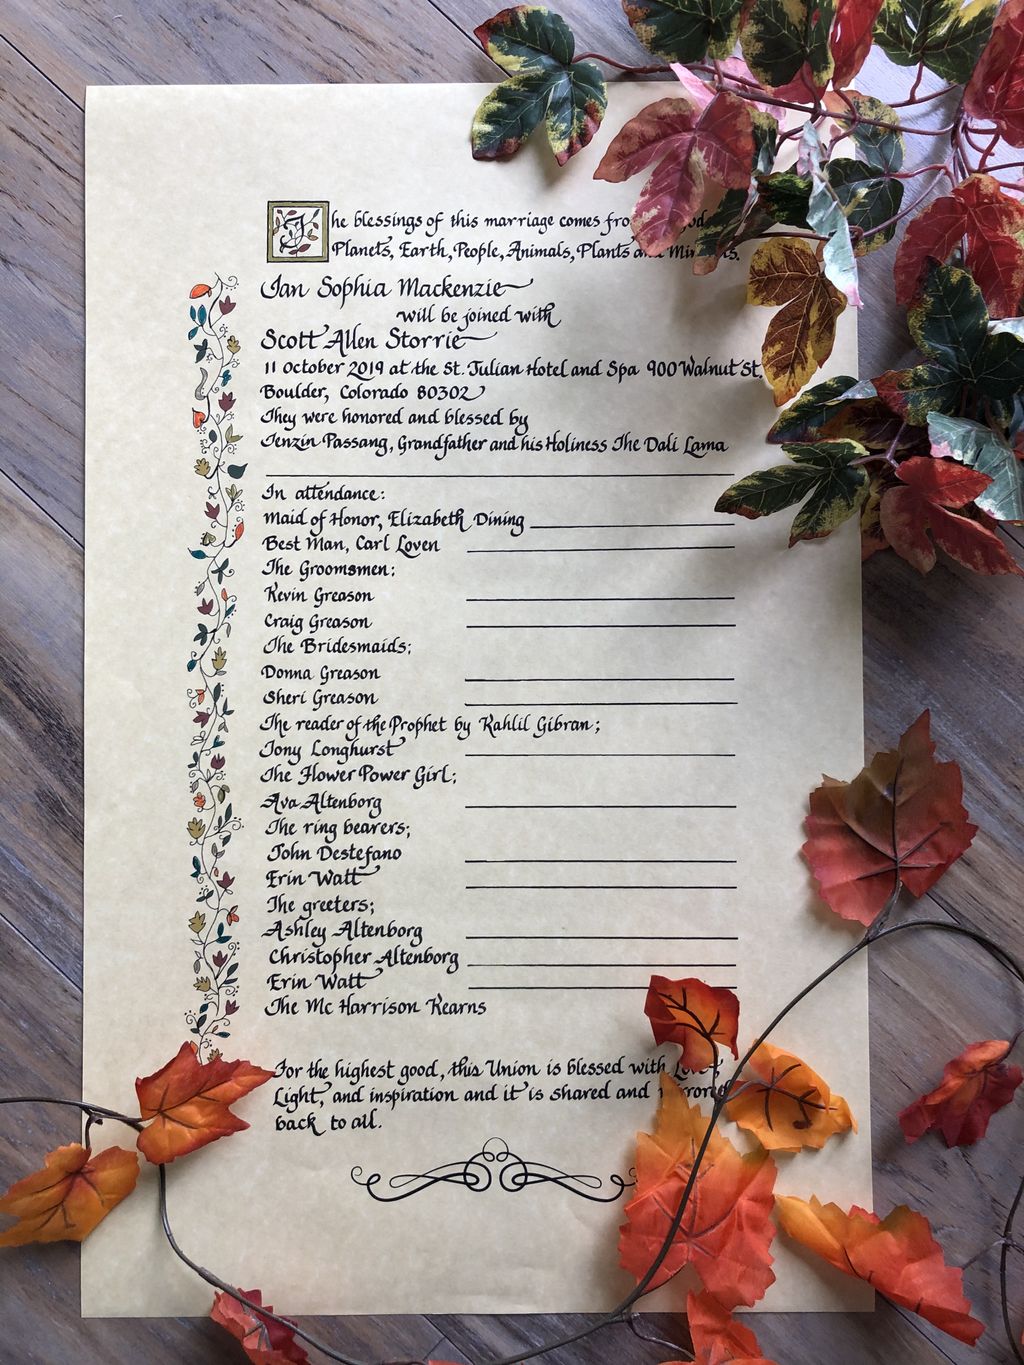 The blessings of this marriage comes
Planets, Earth, People, Animals, Plants and
Jan Sophia Mackenzie
will be joined with
Scott Allen Storrie
11 October 2019 at the St. Julian Hotel and Spa 900 Walnut St.
Boulder, Colorado 80302
They were honored and blessed by
Tenzin Passang, Grandfather and his Holiness The Dali Lama
In attendance:
Maid of Honor, Elizabeth Dining
Best Man, Carl Loven
The Groomsmen:
Kevin Greason
Craig Greason
The Bridesmaids:
Donna Greason
Sheri Greason
The reader of the Prophet by Kahlil Gibran;
Tony Longhurst
The Flower Power Girl;
Ava Altenborg
The ring bearers;
John Destefano
Erin Watt
The greeters;
Ashley Altenborg
Christopher Altenborg
Erin Watt
The Mc Harrison Kearns
For the highest good, this Union is blessed with
Light, and inspiration and it is shared and
back to all.